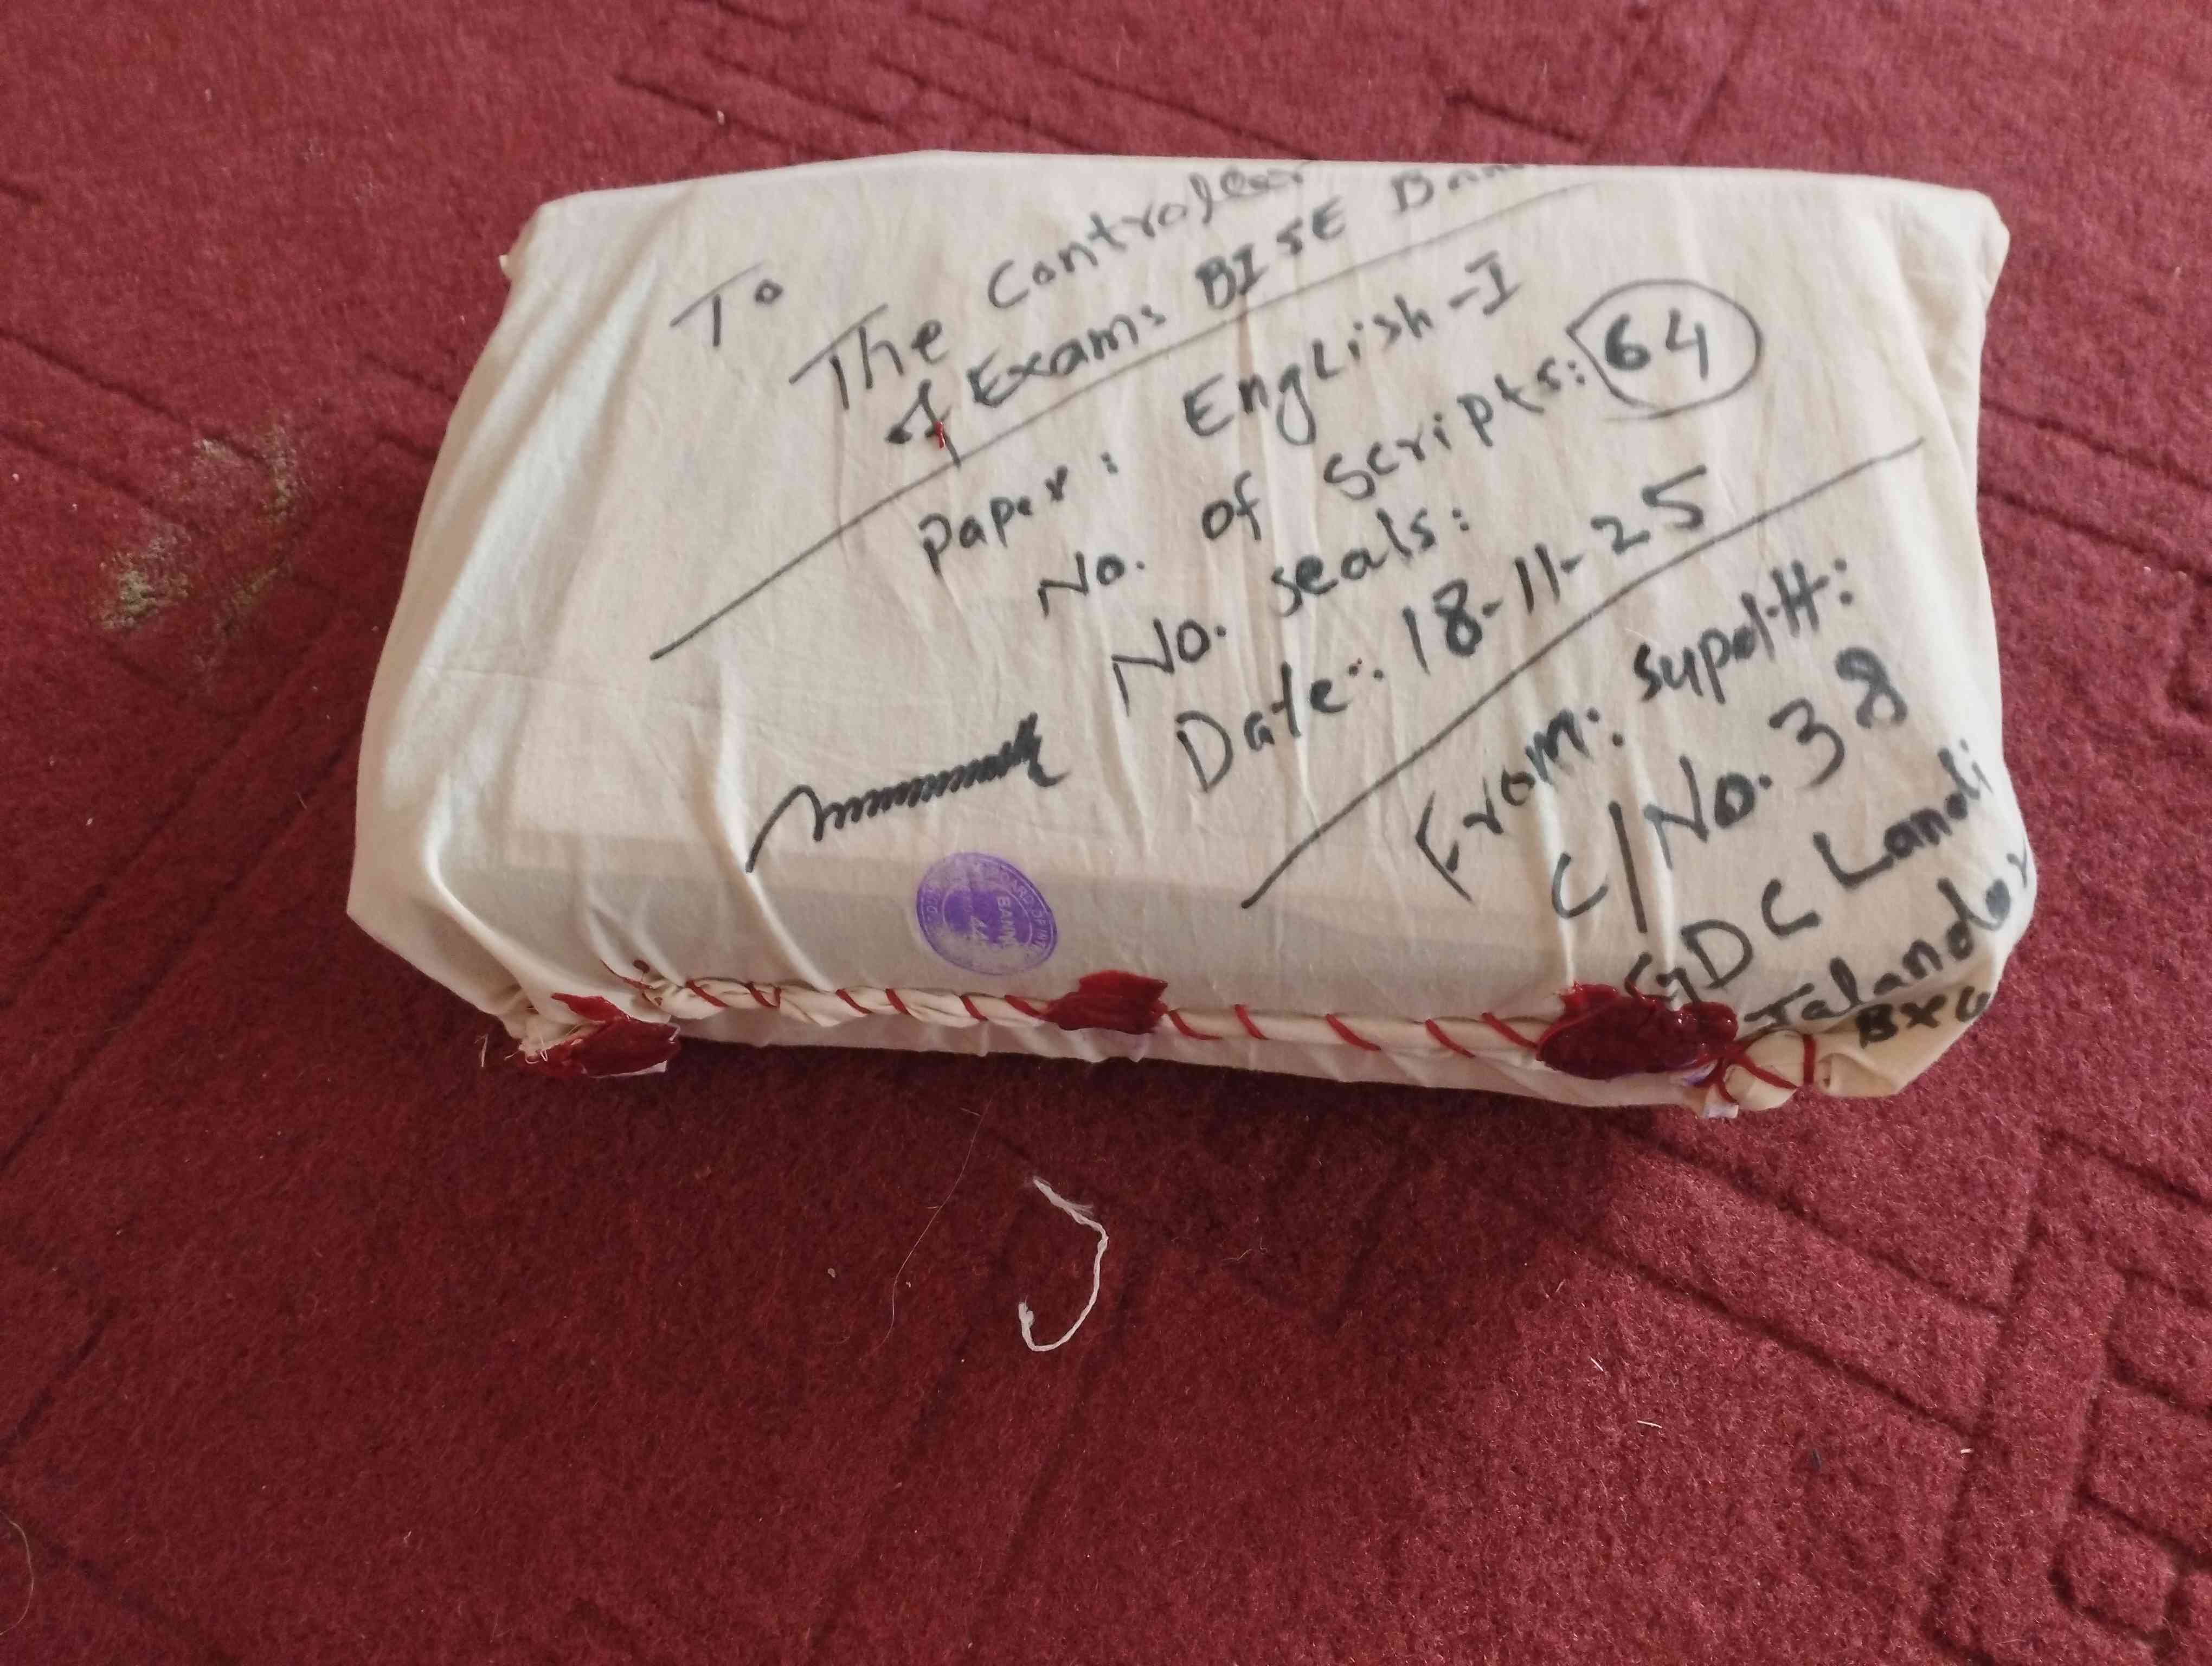 To
The Controller
of Exam: BISE
Paper: English-I
No. of Scripts: 64
No. seals:
Date: 18-11-25
From: Supdtt:
C/No. 38
GDC Landi
Jalandar